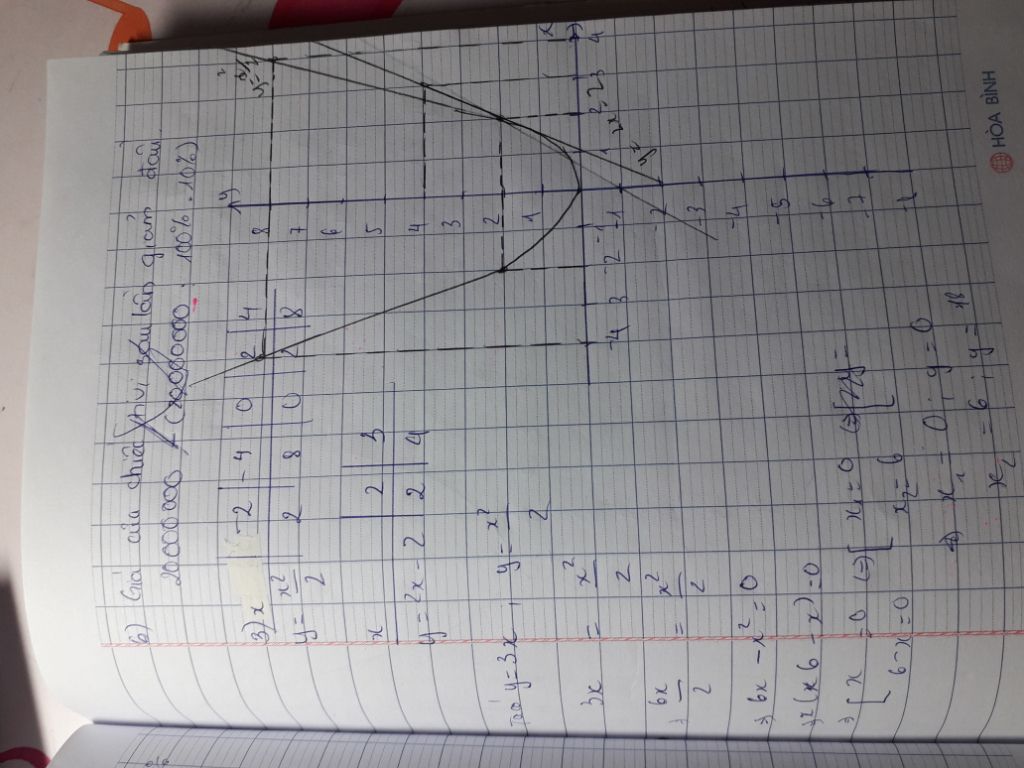 b) Giá của chiếc ti vi sau lần giảm đầu
20000000 - (20000000 . 100% . 10%)
3) x | -2 | -4 | 0 | 2 | 4
y = x²/2 | 2 | 8 | 0 | 2 | 8
x | 2 | 3
y = 2x - 2 | 2 | 4
y = 3x, y = x²/2
3x = x²/2
6x/2 = x²/2
6x - x² = 0
x(6 - x) = 0
[x = 0 [x = 0
[6 - x = 0 (=) [x = 6
=> x₁ = 0; y = 0
x₂ = 6; y = 18
y
8
7
6
5
4
3
2
1
-4 3 -2 -1 1 2 3 4 x
-1
-2
-3
-4
-5
-6
-7
HÒA BÌNH